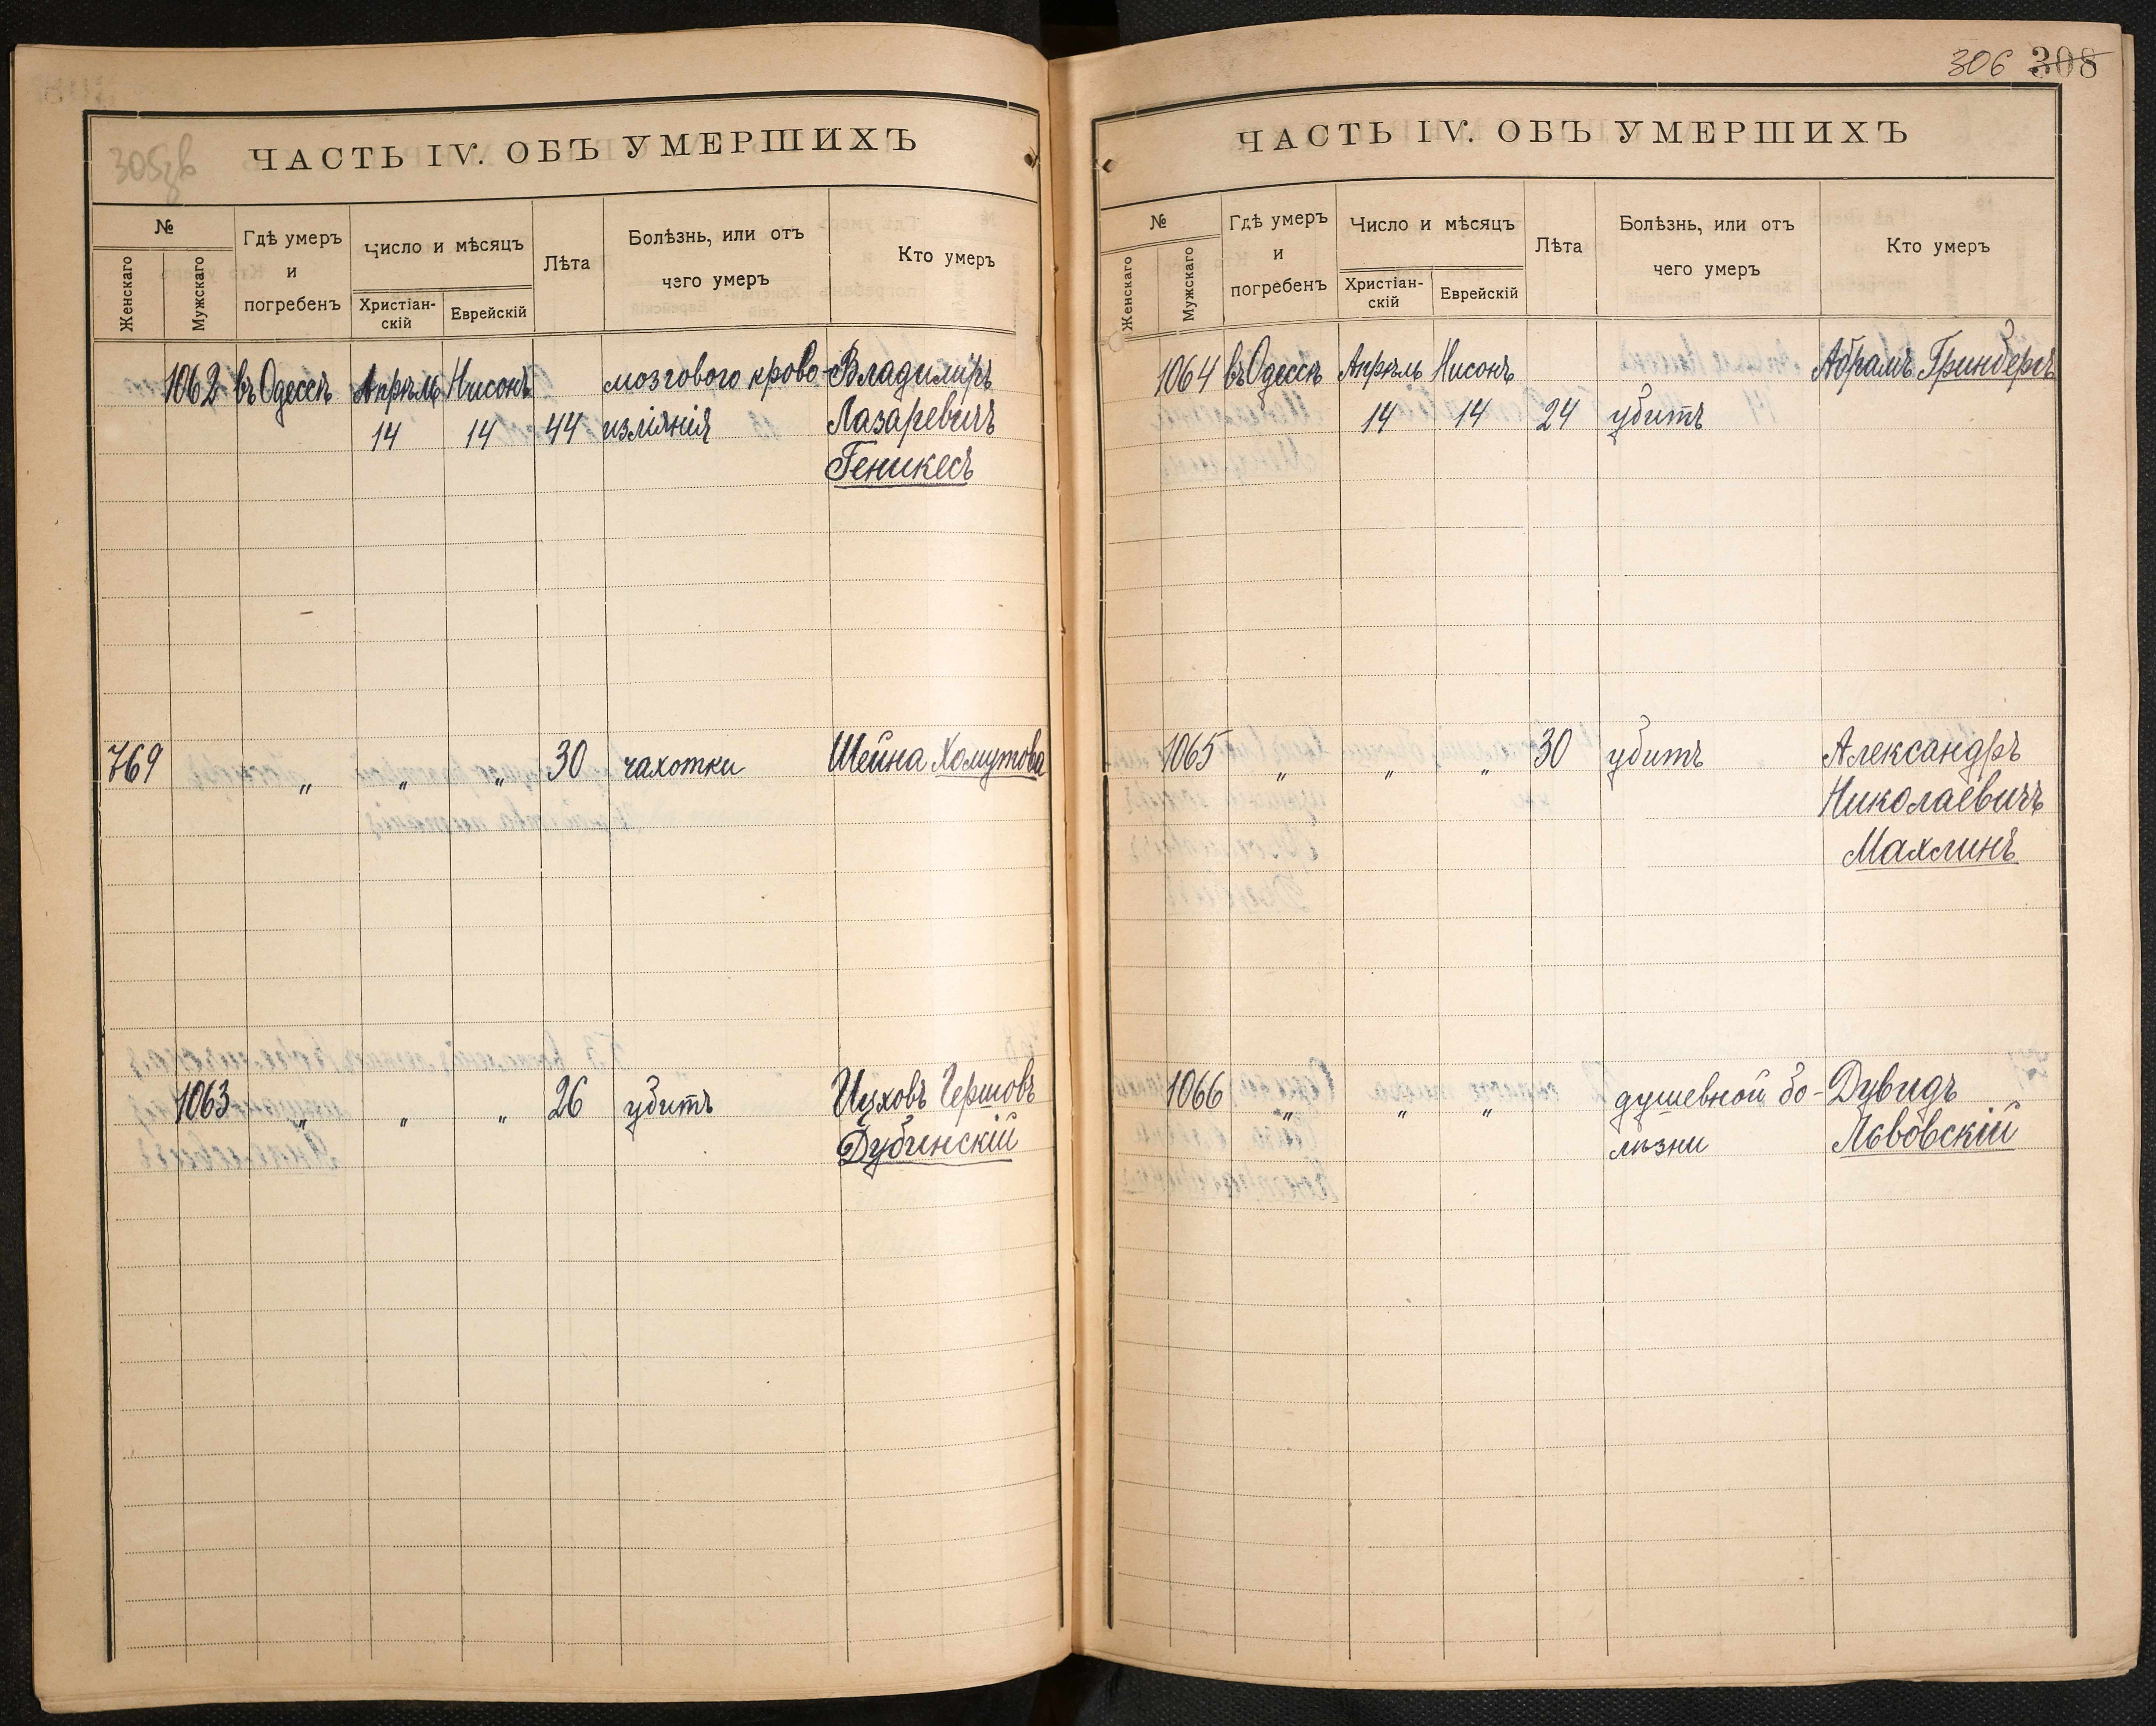 305 зв
ЧАСТЬ IV. ОБЪ УМЕРШИХЪ
№
Женскаго
Мужскаго
Гдѣ умеръ
и
погребенъ
Число и мѣсяцъ
Христіан-
скій
Еврейскій
Лѣта
Болѣзнь, или отъ
чего умеръ
Кто умеръ
1062 въ Одессѣ Апрѣль Нисонъ мозгового крово- Владиміръ
14 14 44 изліянія Лазаревичъ
Геникесъ
769 " " " 30 чахотки Шейна Хомутова
1063 " " " 26 убитъ Ицховъ Гершовъ
Дубинскій
306 308
ЧАСТЬ IV. ОБЪ УМЕРШИХЪ
№
Женскаго
Мужскаго
Гдѣ умеръ
и
погребенъ
Число и мѣсяцъ
Христіан-
скій
Еврейскій
Лѣта
Болѣзнь, или отъ
чего умеръ
Кто умеръ
1064 въ Одессѣ Апрѣль Нисонъ Абрамъ Гринбергъ
14 14 24 убитъ
1065 " " " 30 убитъ Александръ
Николаевичъ
Махлинъ
1066 " " " душевной бо- Дувидъ
лѣзни Львовскій